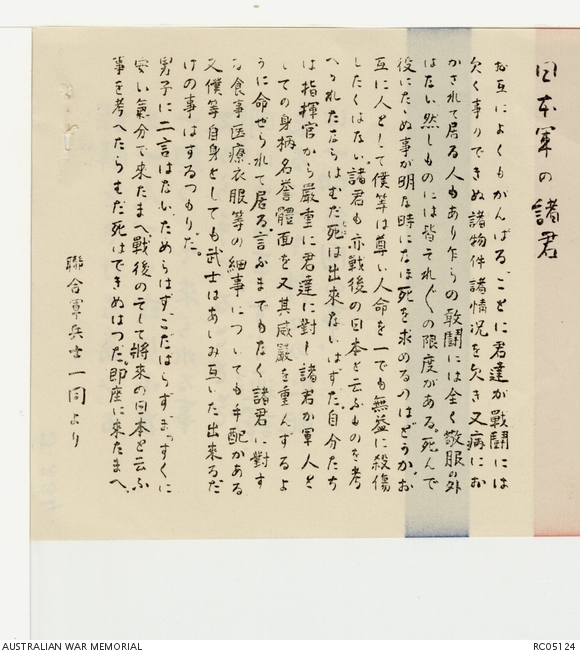 日本軍の諸君
お互によくもがんばる、ことに君達が戦鬪には
欠く事のできぬ諸物件諸情况を欠き又病にお
かされて居る人もあり乍らの敢鬪には全く敬服の外
はない然しものには皆それ〲の限度がある。死んで
役にたゝぬ事が明な時になほ死を求めるのはどうか。お
互に人として僕等は尊い人命を一でも無益に殺傷
したくはない。諸君も亦戦後の日本と云ふものを考
へられたならはむだ死は出來ないはずだ。自分たち
は指揮官から嚴重に君達に對し諸君か軍人と
しての身柄名誉體面を又其威嚴を重んずるよ
うに命ぜられて居る。言ふまでもなく諸君に對す
る食事医療衣服等の細事についても手配がある
又僕等自身としても武士はあいみ互いた出來るだ
けの事はするつもりだ。
男子に二言はない。ためらはずこだはらずまっすぐに
安い氣分で來たまへ戦後のそして將來の日本と云ふ
事を考へたらむだ死はできぬはつだ。即座に来たまへ。
聯合軍兵士一同より
AUSTRALIAN WAR MEMORIAL
RC05124